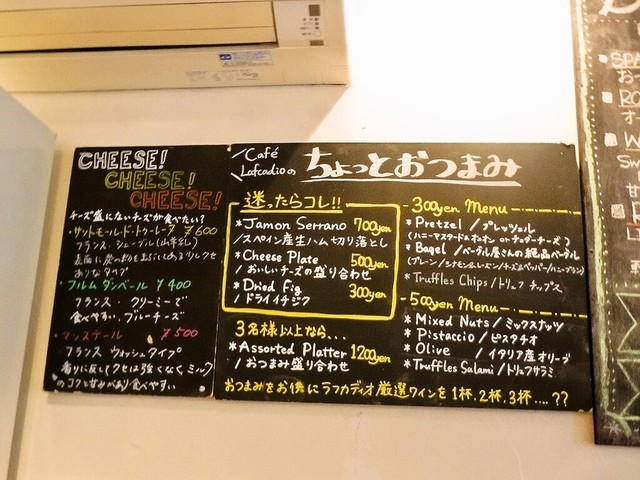 CHEESE!
CHEESE!
CHEESE!
チーズ盛にないチーズが食べたい?
・サントモールドトゥレーヌ ¥600
フランス シェーブル(山羊乳)
フルム ダンベール ¥400
フランス クリーミーで
食べやすい、ブルーチーズ
・マンステール ¥500
フランス ウォッシュタイプ
香りに反してクセは強くなく ミルク
のコクと甘みがあり食べやすい
Café
Lafcadioの
ちょっとおつまみ
迷ったらコレ!!
*Jamon Serrano 700yen
/スペイン産生ハム切り落とし
*Cheese Plate 500yen
/おいしいチーズの盛り合わせ
*Dried fig 300yen
/ドライイチジク
3名様以上なら...
*Assorted Platter 1200yen
/おつまみ盛り合わせ
300yen Menu
*Pretzel /プレッツェル
(ハニーマスタード&オニオン or チェダーチーズ)
*Bagel /ベーグル屋さんの絶品ベーグル
*Truffles Chips /トリュフ チップス
500yen Menu
*Mixed Nuts /ミックスナッツ
*Pistaccio /ピスタチオ
*Olive /イタリア産オリーブ
*Truffles Salami /トリュフサラミ
おつまみをお供にラフカディオ厳選ワインを1杯.2杯.3杯....??